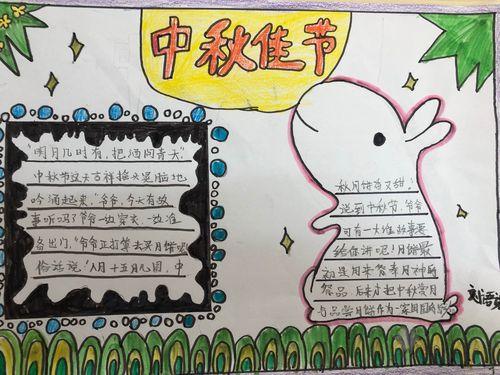 中秋佳节
"明月几时有,把酒问青天"
中秋节这天吉祥摇头晃脑地
吟诵起来,"爷爷,今天有故
事听吗?"爷爷一边穿衣一边准
备出门,"爷爷正打算去买月饼呢
俗话说,"八月十五月儿圆,中
秋月饼香又甜,
说到中秋节,爷爷
可有一大堆故事要
给你讲呢!月饼最
初是用来祭奉月神的
祭品,后来人们把中秋赏月
与品尝月饼作为一家团圆的
刘